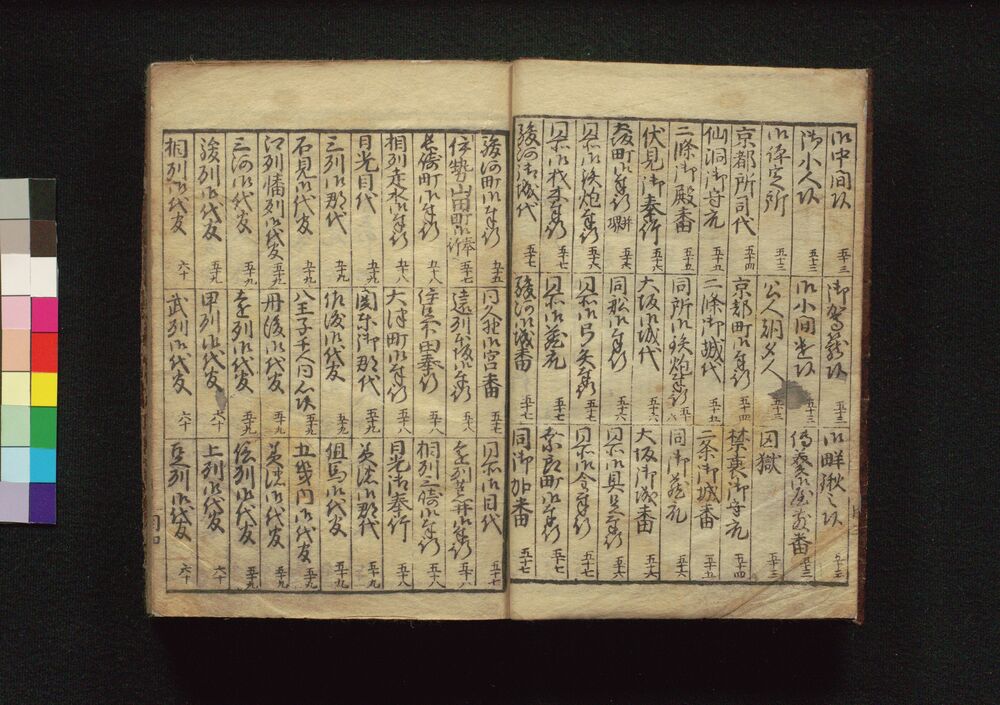 御中間頭 五十三 御駕籠頭 五十三 御畔鍬之頭 五十三
御小人頭 五十三 御小間遣頭 五十三 傳奏御屋敷番 五十三
御評定所 五十三 公人朝夕人 五十三 囚獄 五十三
京都所司代 五十四 京都町御奉行 五十四 禁裏御守衆 五十四
仙洞御守衆 五十五 二條御城代 五十五 二条御城番 五十五
二條御殿番 五十五 同所御鉄炮奉行 同御蔵衆 五十六
伏見御奉行 五十六 大坂御城代 五十六 大坂御城番 五十六
大坂町御奉行 并堺 五十六 同船御奉行 五十六 同所御具足奉行 五十六
同所御鉄炮奉行 五十六 同所御弓矢奉行 五十七 同所御金奉行 五十七
同所御材木奉行 五十七 同所御蔵衆 五十七 奈良町御奉行 五十七
駿河御城代 五十七 駿河御城番 五十七 同御加番 五十七
駿河町御奉行 五十七 同久能御宮番 五十七 同所御目代 五十七
伊勢山田町御奉行 五十七 遠列 五十八 遠列荒井御奉行 五十八
長崎町御奉行 五十八 佐渡国奉行 五十八 相列三崎御奉行 五十八
相列走水御奉行 五十八 大津町御奉行 五十八 日光御奉行 五十八
日光目代 五十九 関東御郡代 五十九 美濃御郡代 五十九
三列御郡代 五十九 佐渡御代友 五十九 但馬御代友 五十九
石見御代友 五十九 八王子千人同心頭 五十九 五畿内御代友 五十九
江列幡列御代友 五十九 丹後御代友 五十九 美濃御代友 五十九
三河御代友 五十九 遠列御代友 五十九 信列御代友 五十九
駿列御代友 五十九 甲列御代友 六十 上列御代友 六十
相列御代友 六十 武列御代友 六十 豆列御代友 六十